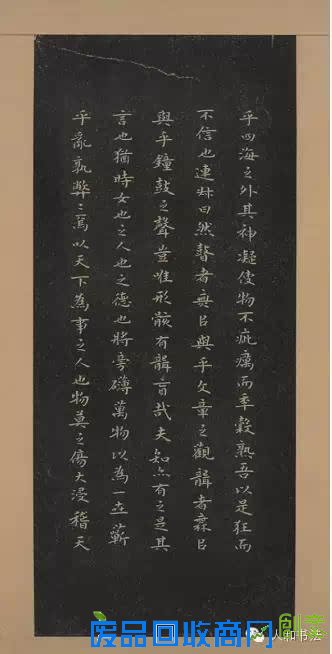 乎四海之外其神凝使物不疵癘而年穀熟吾以是狂而
不信也連叔曰然瞽者無以與乎文章之觀聾者無以
與乎鐘鼓之聲豈唯形骸有聾盲哉夫知亦有之是其
言也猶時女也之人也之德也將旁礴萬物以為一世蘄
乎亂孰弊〻焉以天下為事之人也物莫之傷大浸稽天
创意
人和书法
废品回收商网